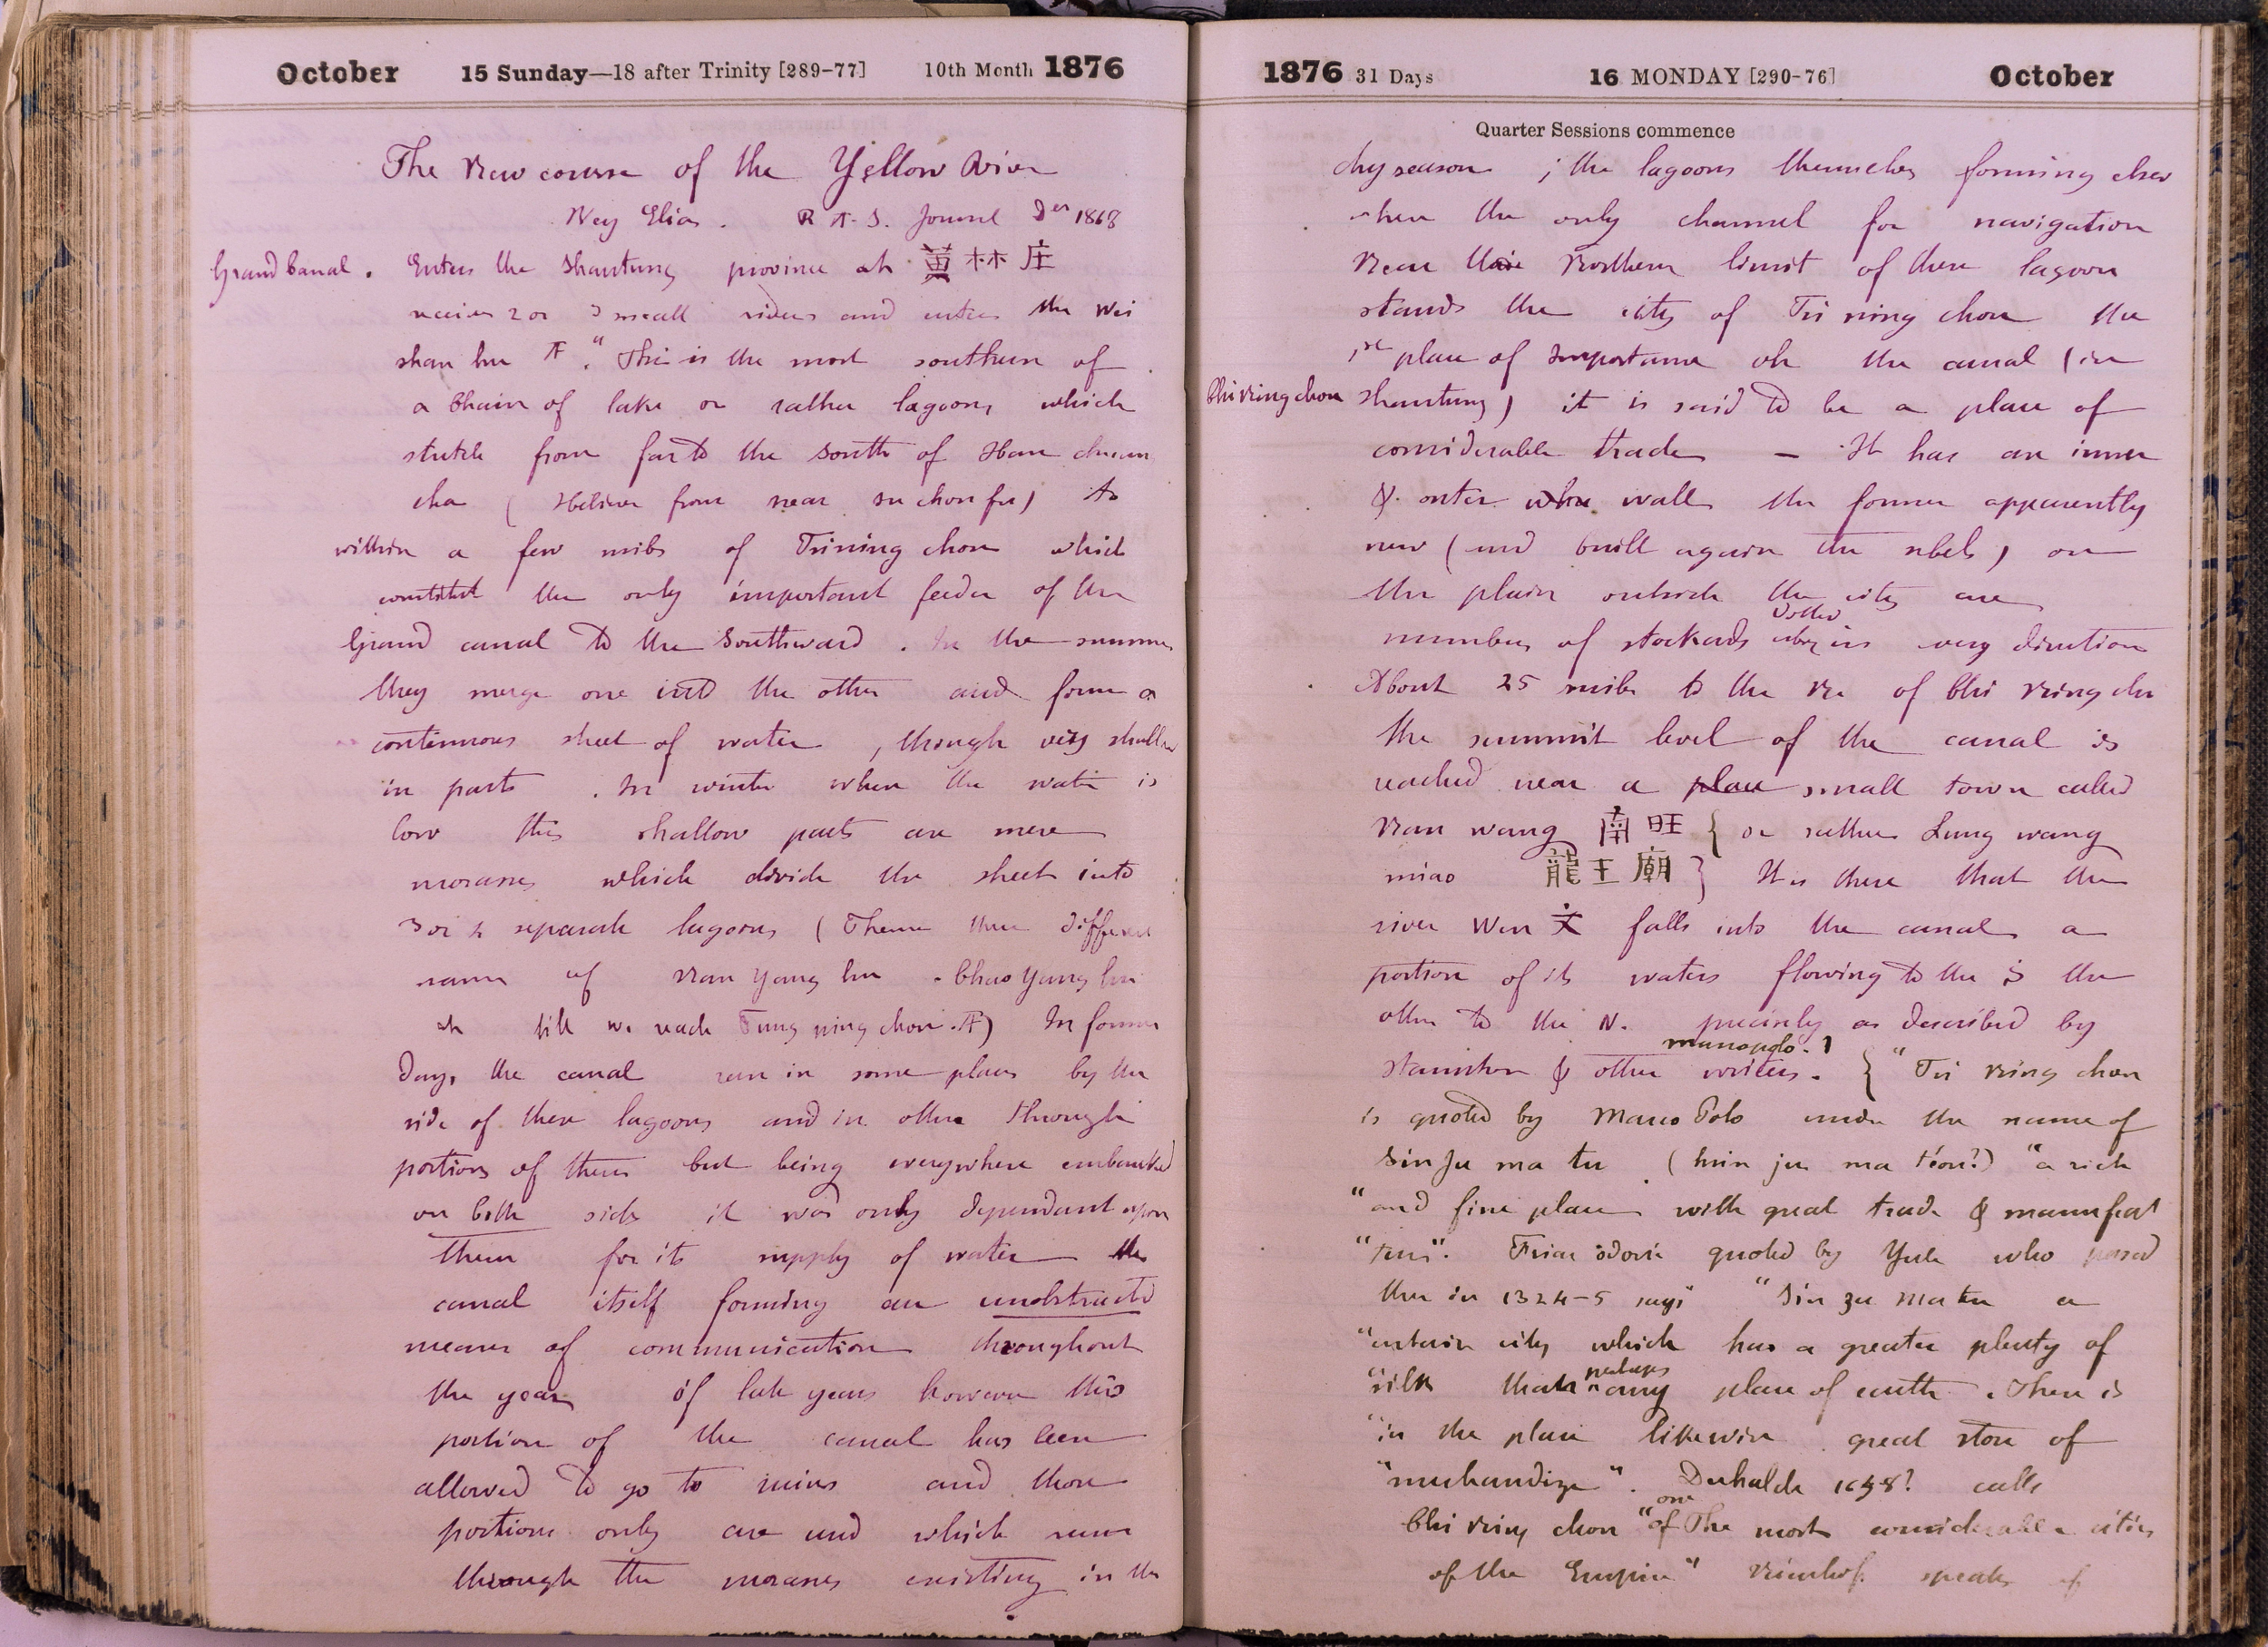 October 15 Sunday—18 after Trinity [289-77] 10th Month 1876
The New course of the Yellow River
Ney Elias. R A. S. Journal 1868
Grand Canal. Enters the Shantung province at 黄林庄
receives 2 or 3 small rivers and enters the Wei
shan hu "This is the most southern of
a Chain of lake or rather lagoons which
stretch from far to the South of Han chuan
cha ( I believe from near su chou fu) to
within a few miles of Tsining chou which
constitut the only important feeder of the
Grand canal to the Southward. In the summer
they merge one into the other and form a
continuous sheet of water, though very shallow
in parts. In winter when the water is
low this shallow parts are mere
morasses which divide the sheet into
3 or 4 separate lagoons ( Thence the different
names of Nan Yang hu. Chao Yang hu
till we reach Tung ning chou.) In former
Days the canal ran in some places by the
side of these lagoons and in other through
portions of them but being everywhere embanked
on both side it was only dependant upon
them for its supply of water the
canal itself forming an unobstructed
means of communication throughout
the year of late years however this
portion of the canal has been
allowed to go to ruins and those
portions only are used which run
through the morasses existing in the
1876 31 Days 16 MONDAY [290-76] October
Quarter Sessions commence
dry season ; the lagoons themselves forming
the only channel for navigation
Near the Northern limit of these lagoon
stands the city of Tsi ning chou the
1st place of importance on the canal (in
Chi ning chou Shantung) it is said to be a place of
considerable trade — It has an inner
& outer wall the former apparently
new (and built again the rebels) on
the plain outside the city are
numbers of stockads dotted in every direction
About 25 miles to the of Chi ning chu
the summit level of the canal is
reached near a place small town called
Nan wang 南旺 { or rather Lung wang
miao 龍王廟 } It is there that the
river Wen 文 falls into the canal a
portion of its waters flowing to the S the
other to the N. precisely as described by
Staunton & other writers. { "Tsi ning chou
is quoted by Marco Polo under the name of
Sin Ju ma tu ( hsin ju ma téou?) "a rich
"and fine place with great trade & manufact
"tures". Friar odoric quoted by Yule who passed
there in 1324-5 says "Sin zu matu a
"certain city which has a greater plenty of
"silk than perhaps any place of earth. There is
"in the place likewise great store of
"merchandize". Duhalde calls
Chi ning chou "one of the most considerable cities
of the Empire" speaks of